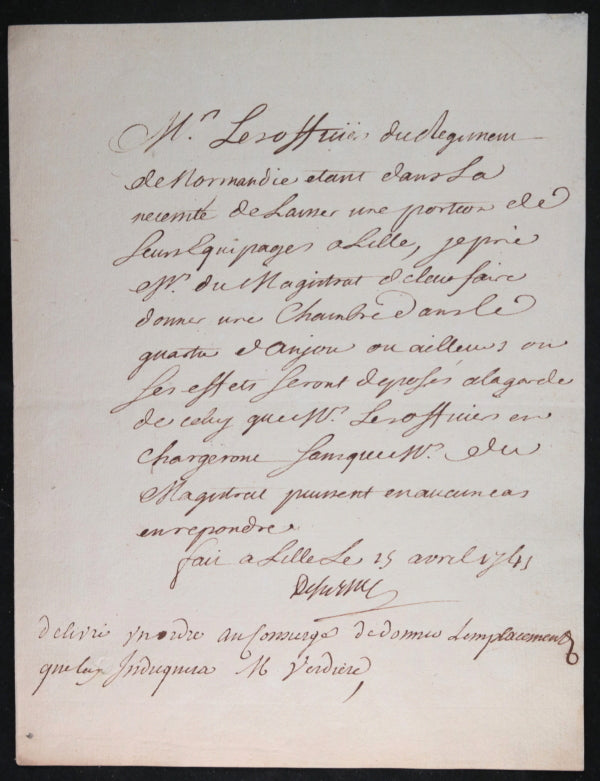 Mrs. Les officiers du Regiment
de Normandie etant dans La
necemté de Laisser une portion de
Leurs Equipages a Lille, je prie
Mrs. du Magistrat de leur faire
donner une Chambre dans le
quartier d'anjou ou ailleurs ou
Ses effets Seront deposés a la garde
de celuy que Mrs. Les officiers en
Chargeront Sans que Mrs. du
Magistrat puissent en aucun cas
en repondre.
fait a Lille Le 25 avril 1741
delivré un ordre au Consierge de donner Lemplacement
que luy Induquera M Verdiere,